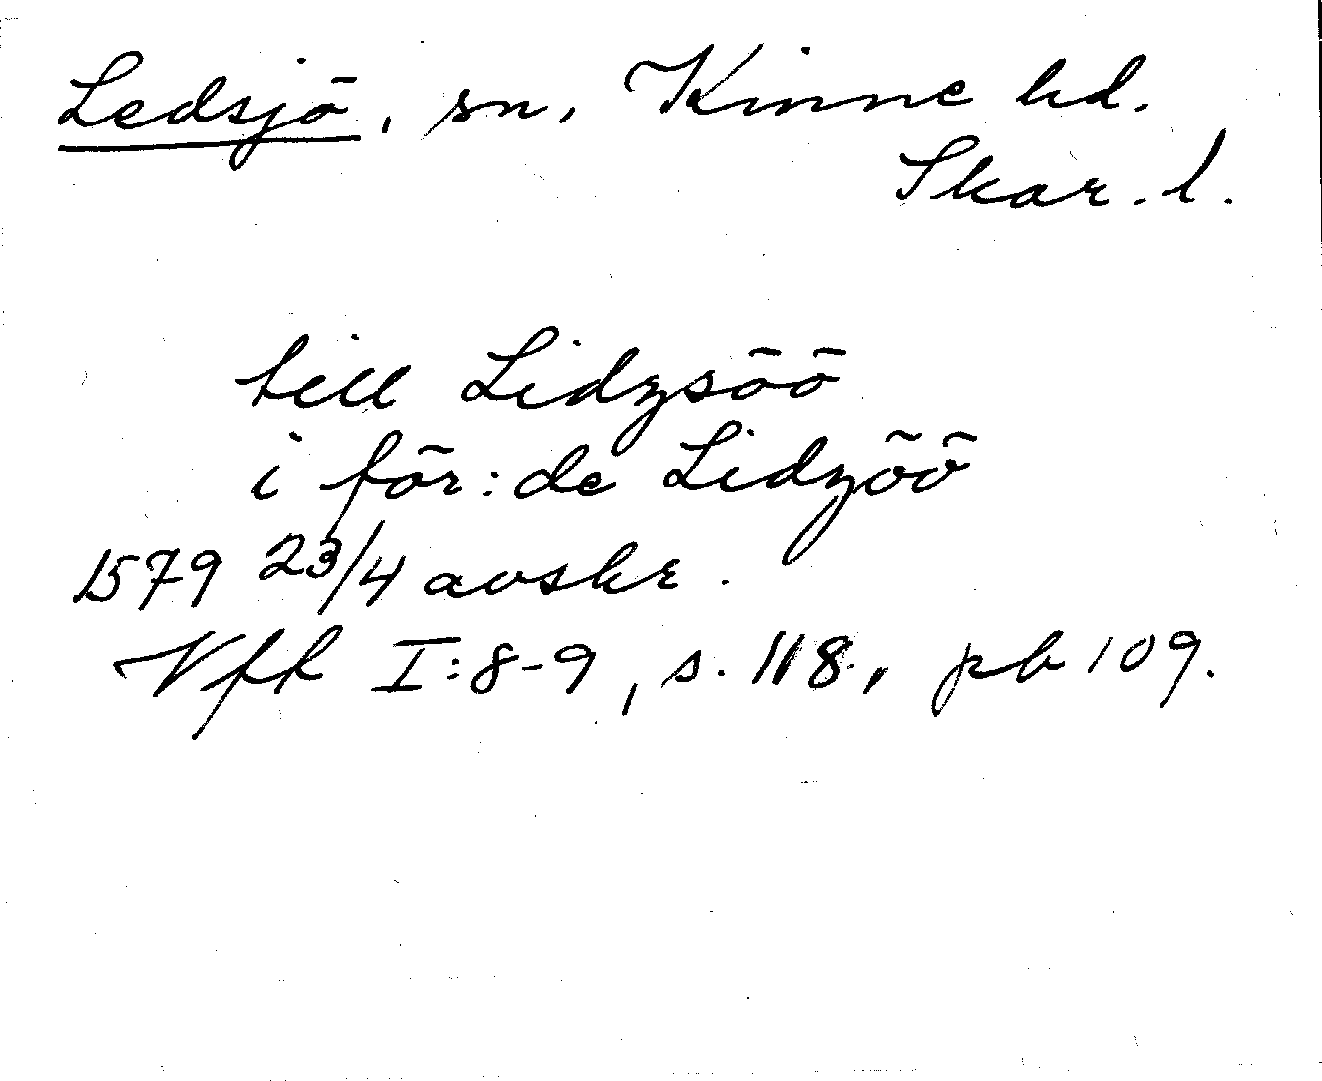 Ledsjö, sn, Kinne hd.
Skar. l.
till Lidzsöö
i för: de Lidzöö
1579 23/4 avskr.
Vfk I:8-9, s. 118., pb 109.